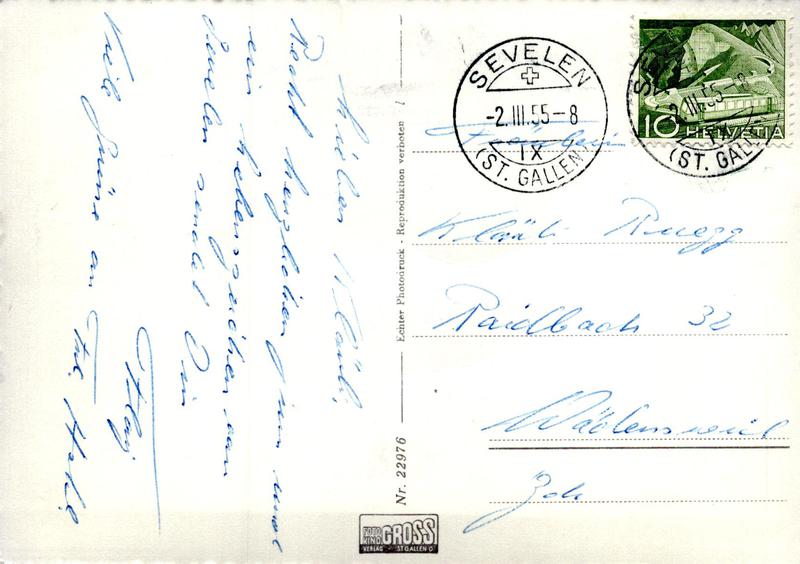 Liebes Kläuli,
Recht herzlichen
ein Lebenszeichen von
Sevelen sendet Dir
Viele Grüsse an
Echter Photodruck - Reproduktion verboten
Nr. 22976
FOTO KINO GROSS
VERLAG ST. GALLEN O
SEVELEN
-2.III.55-8
IX
(ST. GALLEN)
SEVELEN
-2.III.55-8
IX
(ST. GALLEN)
10 HELVETIA
Fräulein
Kläuli Ruegg
Raidbach 32
Wädenswil
Zch